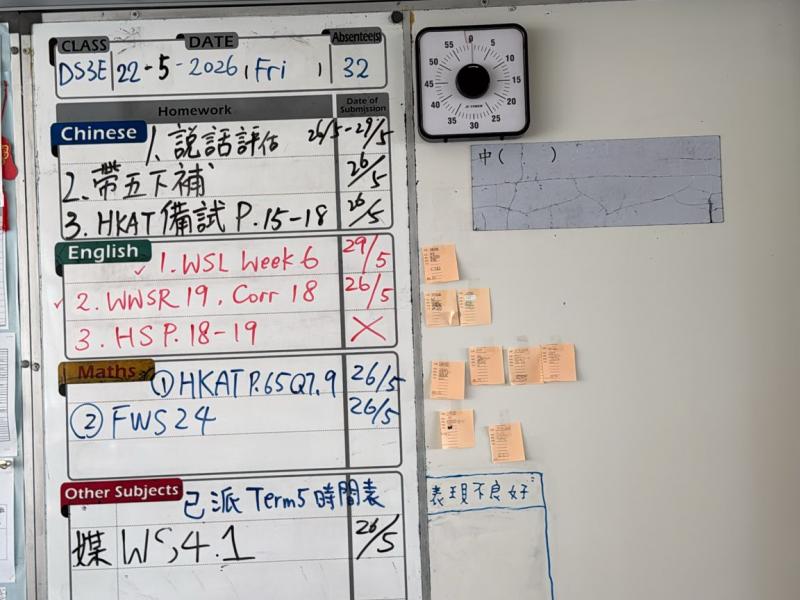 CLASS DATE Absentee(s)
DS3E 22-5-2026, Fri, 32
Homework Date of Submission
Chinese
1. 說話評估 26/5-29/5
2. 帶五下補 26/5
3. HKAT 備試 P.15-18 26/5
English
1. WSL Week 6 29/5
2. WWSR 19, Corr 18 26/5
3. HS P. 18-19 X
Maths
① HKAT P.65 Q7, 9 26/5
② FWS 24 26/5
Other Subjects
已派 Term5 時間表
媒 WS4.1 26/5
0 5 10 15 20 25 30 35 40 45 50 55
中( )
表現不良好